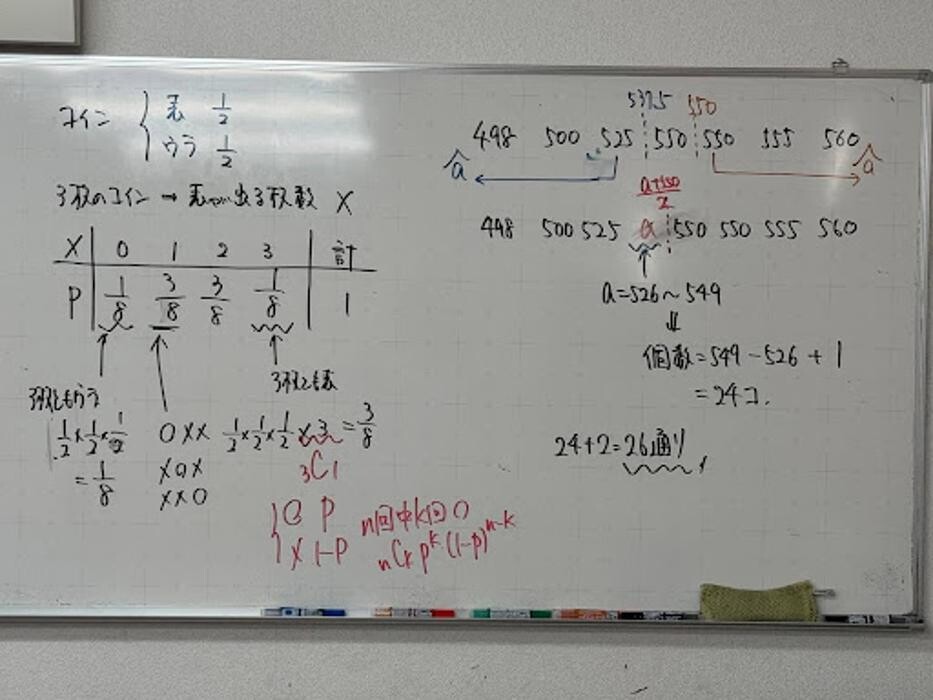 コイン { 表 1/2
ウラ 1/2
3枚のコイン → 表が出る枚数 X
X 0 1 2 3 計
P 1/8 3/8 3/8 1/8 1
3枚ともウラ
3枚とも表
1/2 × 1/2 × 1/2
= 1/8
○××
×○×
××○
1/2 × 1/2 × 1/2 × 3 = 3/8
3C1
{ ○ P
× 1-P
n回中k回○
nCk p^k (1-p)^n-k
537.5 550
498 500 525 550 550 555 560
a a
a+550/2
498 500 525 a 550 550 555 560
a=526~549
⇓
個数=549-526+1
=24コ.
24+2=26通り